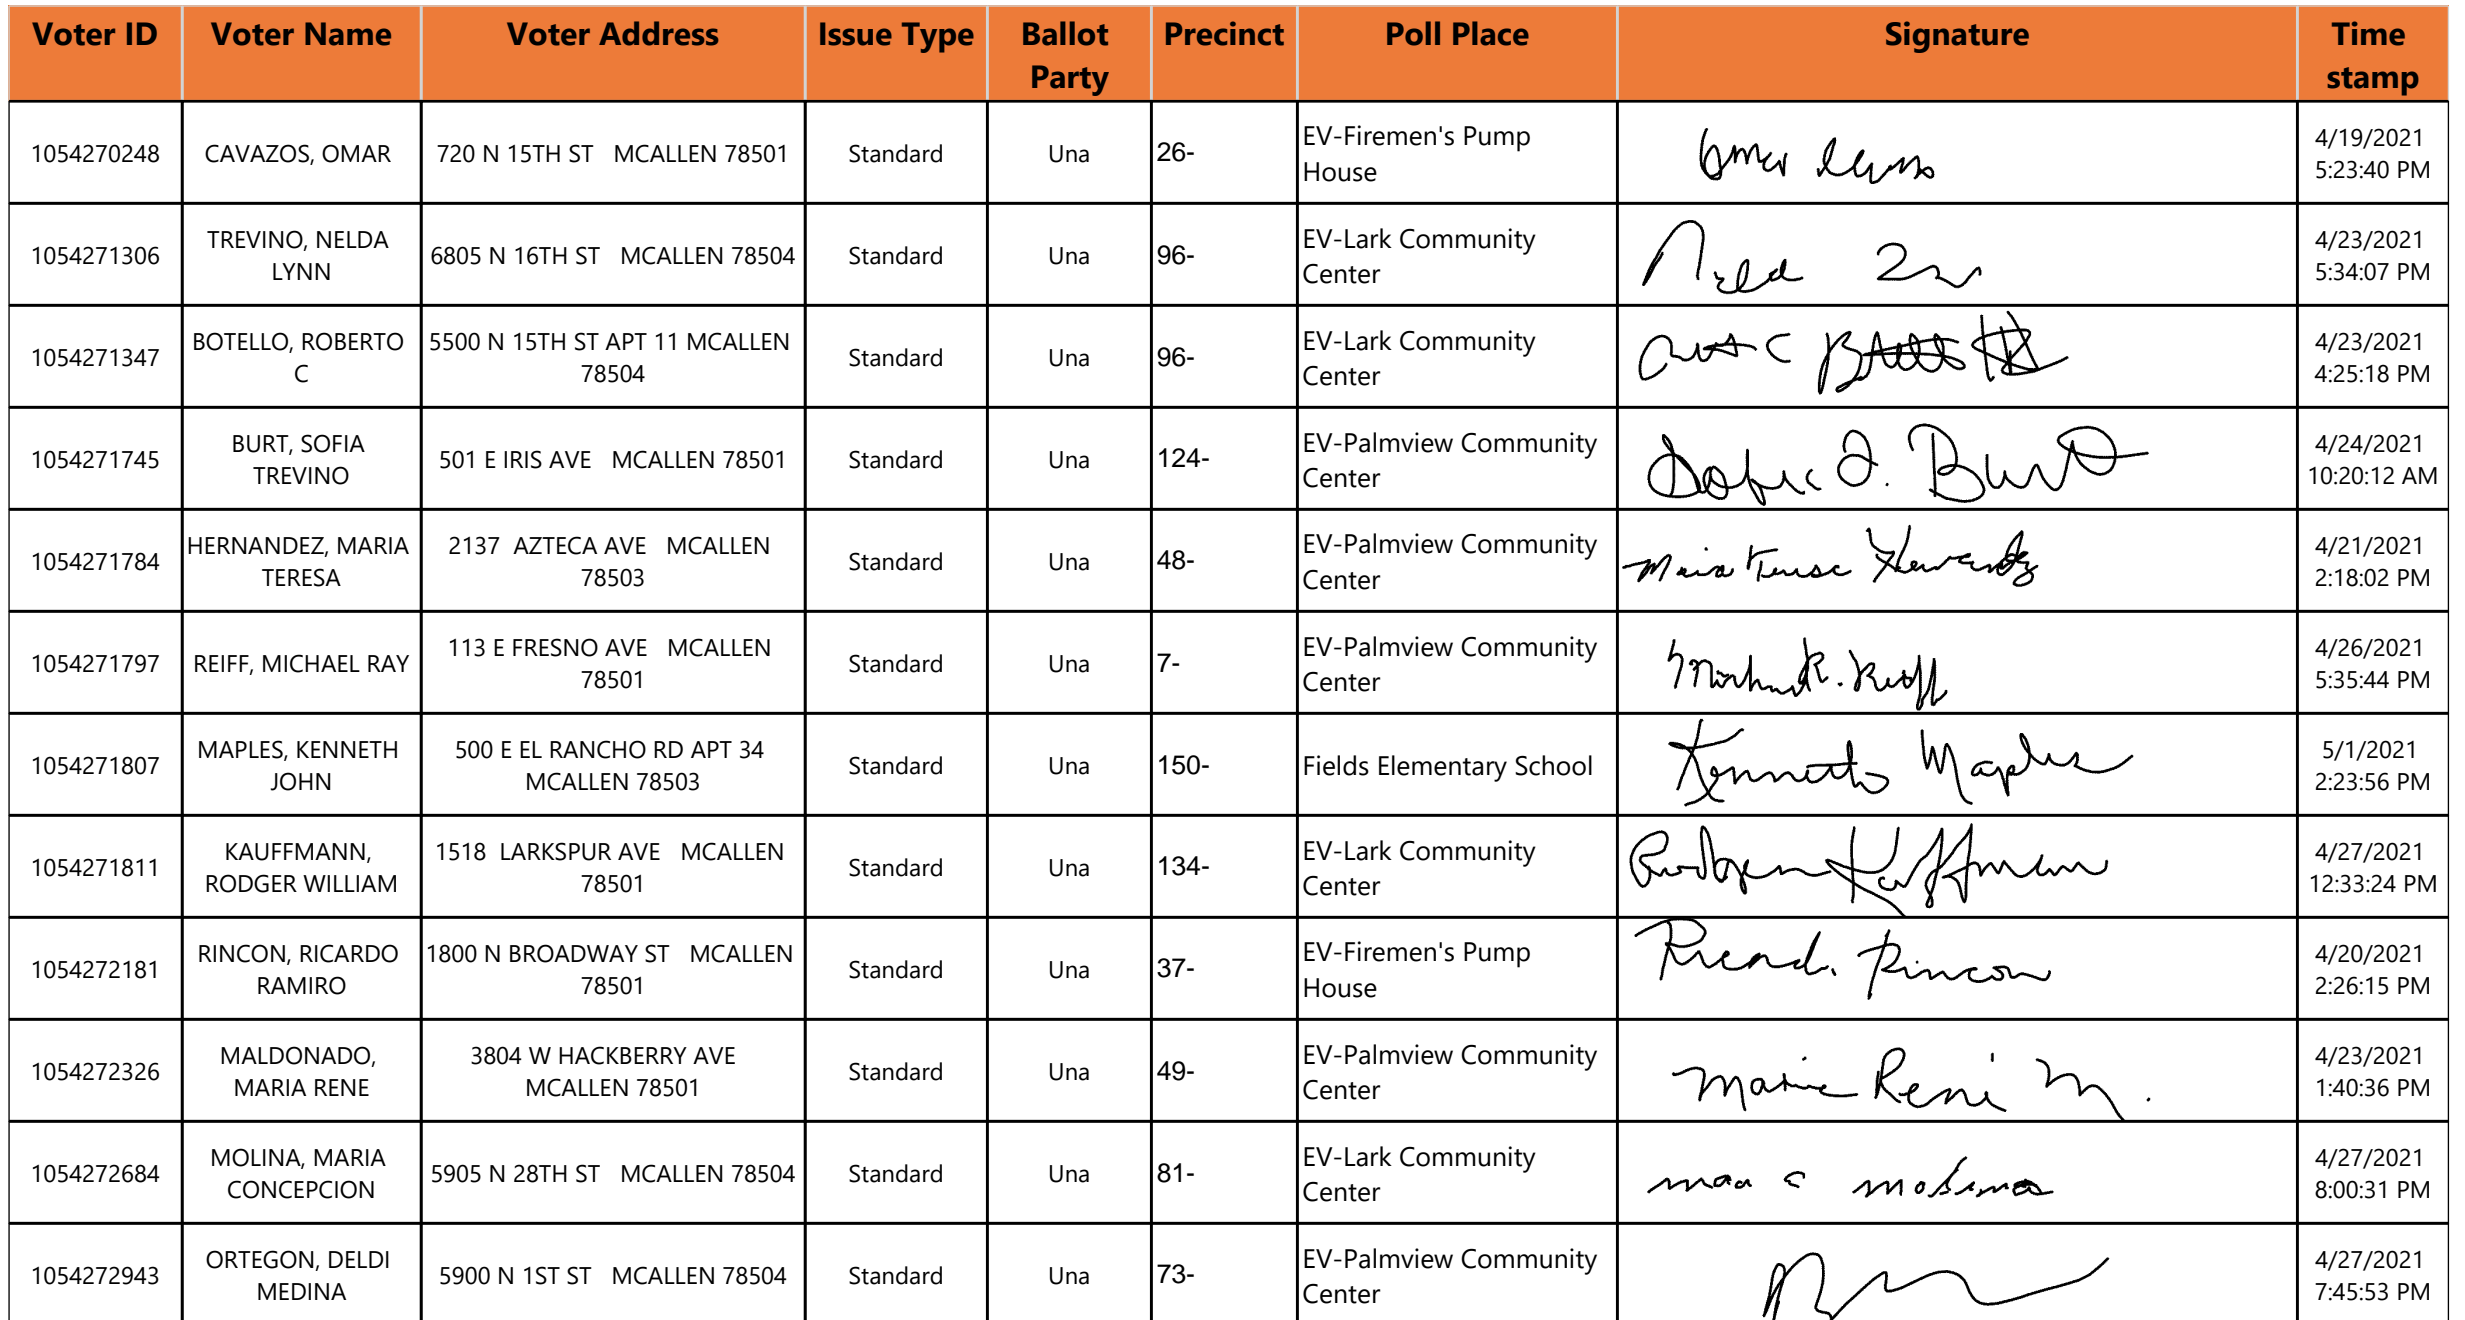 Voter ID Voter Name Voter Address Issue Type Ballot Party Precinct Poll Place Signature Time stamp
1054270248 CAVAZOS, OMAR 720 N 15TH ST MCALLEN 78501 Standard Una 26- EV-Firemen's Pump House 4/19/2021 5:23:40 PM
1054271306 TREVINO, NELDA LYNN 6805 N 16TH ST MCALLEN 78504 Standard Una 96- EV-Lark Community Center 4/23/2021 5:34:07 PM
1054271347 BOTELLO, ROBERTO C 5500 N 15TH ST APT 11 MCALLEN 78504 Standard Una 96- EV-Lark Community Center 4/23/2021 4:25:18 PM
1054271745 BURT, SOFIA TREVINO 501 E IRIS AVE MCALLEN 78501 Standard Una 124- EV-Palmview Community Center 4/24/2021 10:20:12 AM
1054271784 HERNANDEZ, MARIA TERESA 2137 AZTECA AVE MCALLEN 78503 Standard Una 48- EV-Palmview Community Center 4/21/2021 2:18:02 PM
1054271797 REIFF, MICHAEL RAY 113 E FRESNO AVE MCALLEN 78501 Standard Una 7- EV-Palmview Community Center 4/26/2021 5:35:44 PM
1054271807 MAPLES, KENNETH JOHN 500 E EL RANCHO RD APT 34 MCALLEN 78503 Standard Una 150- Fields Elementary School Kenneth Maples 5/1/2021 2:23:56 PM
1054271811 KAUFFMANN, RODGER WILLIAM 1518 LARKSPUR AVE MCALLEN 78501 Standard Una 134- EV-Lark Community Center 4/27/2021 12:33:24 PM
1054272181 RINCON, RICARDO RAMIRO 1800 N BROADWAY ST MCALLEN 78501 Standard Una 37- EV-Firemen's Pump House Rincon 4/20/2021 2:26:15 PM
1054272326 MALDONADO, MARIA RENE 3804 W HACKBERRY AVE MCALLEN 78501 Standard Una 49- EV-Palmview Community Center Maria Rene M. 4/23/2021 1:40:36 PM
1054272684 MOLINA, MARIA CONCEPCION 5905 N 28TH ST MCALLEN 78504 Standard Una 81- EV-Lark Community Center maa c molina 4/27/2021 8:00:31 PM
1054272943 ORTEGON, DELDI MEDINA 5900 N 1ST ST MCALLEN 78504 Standard Una 73- EV-Palmview Community Center 4/27/2021 7:45:53 PM